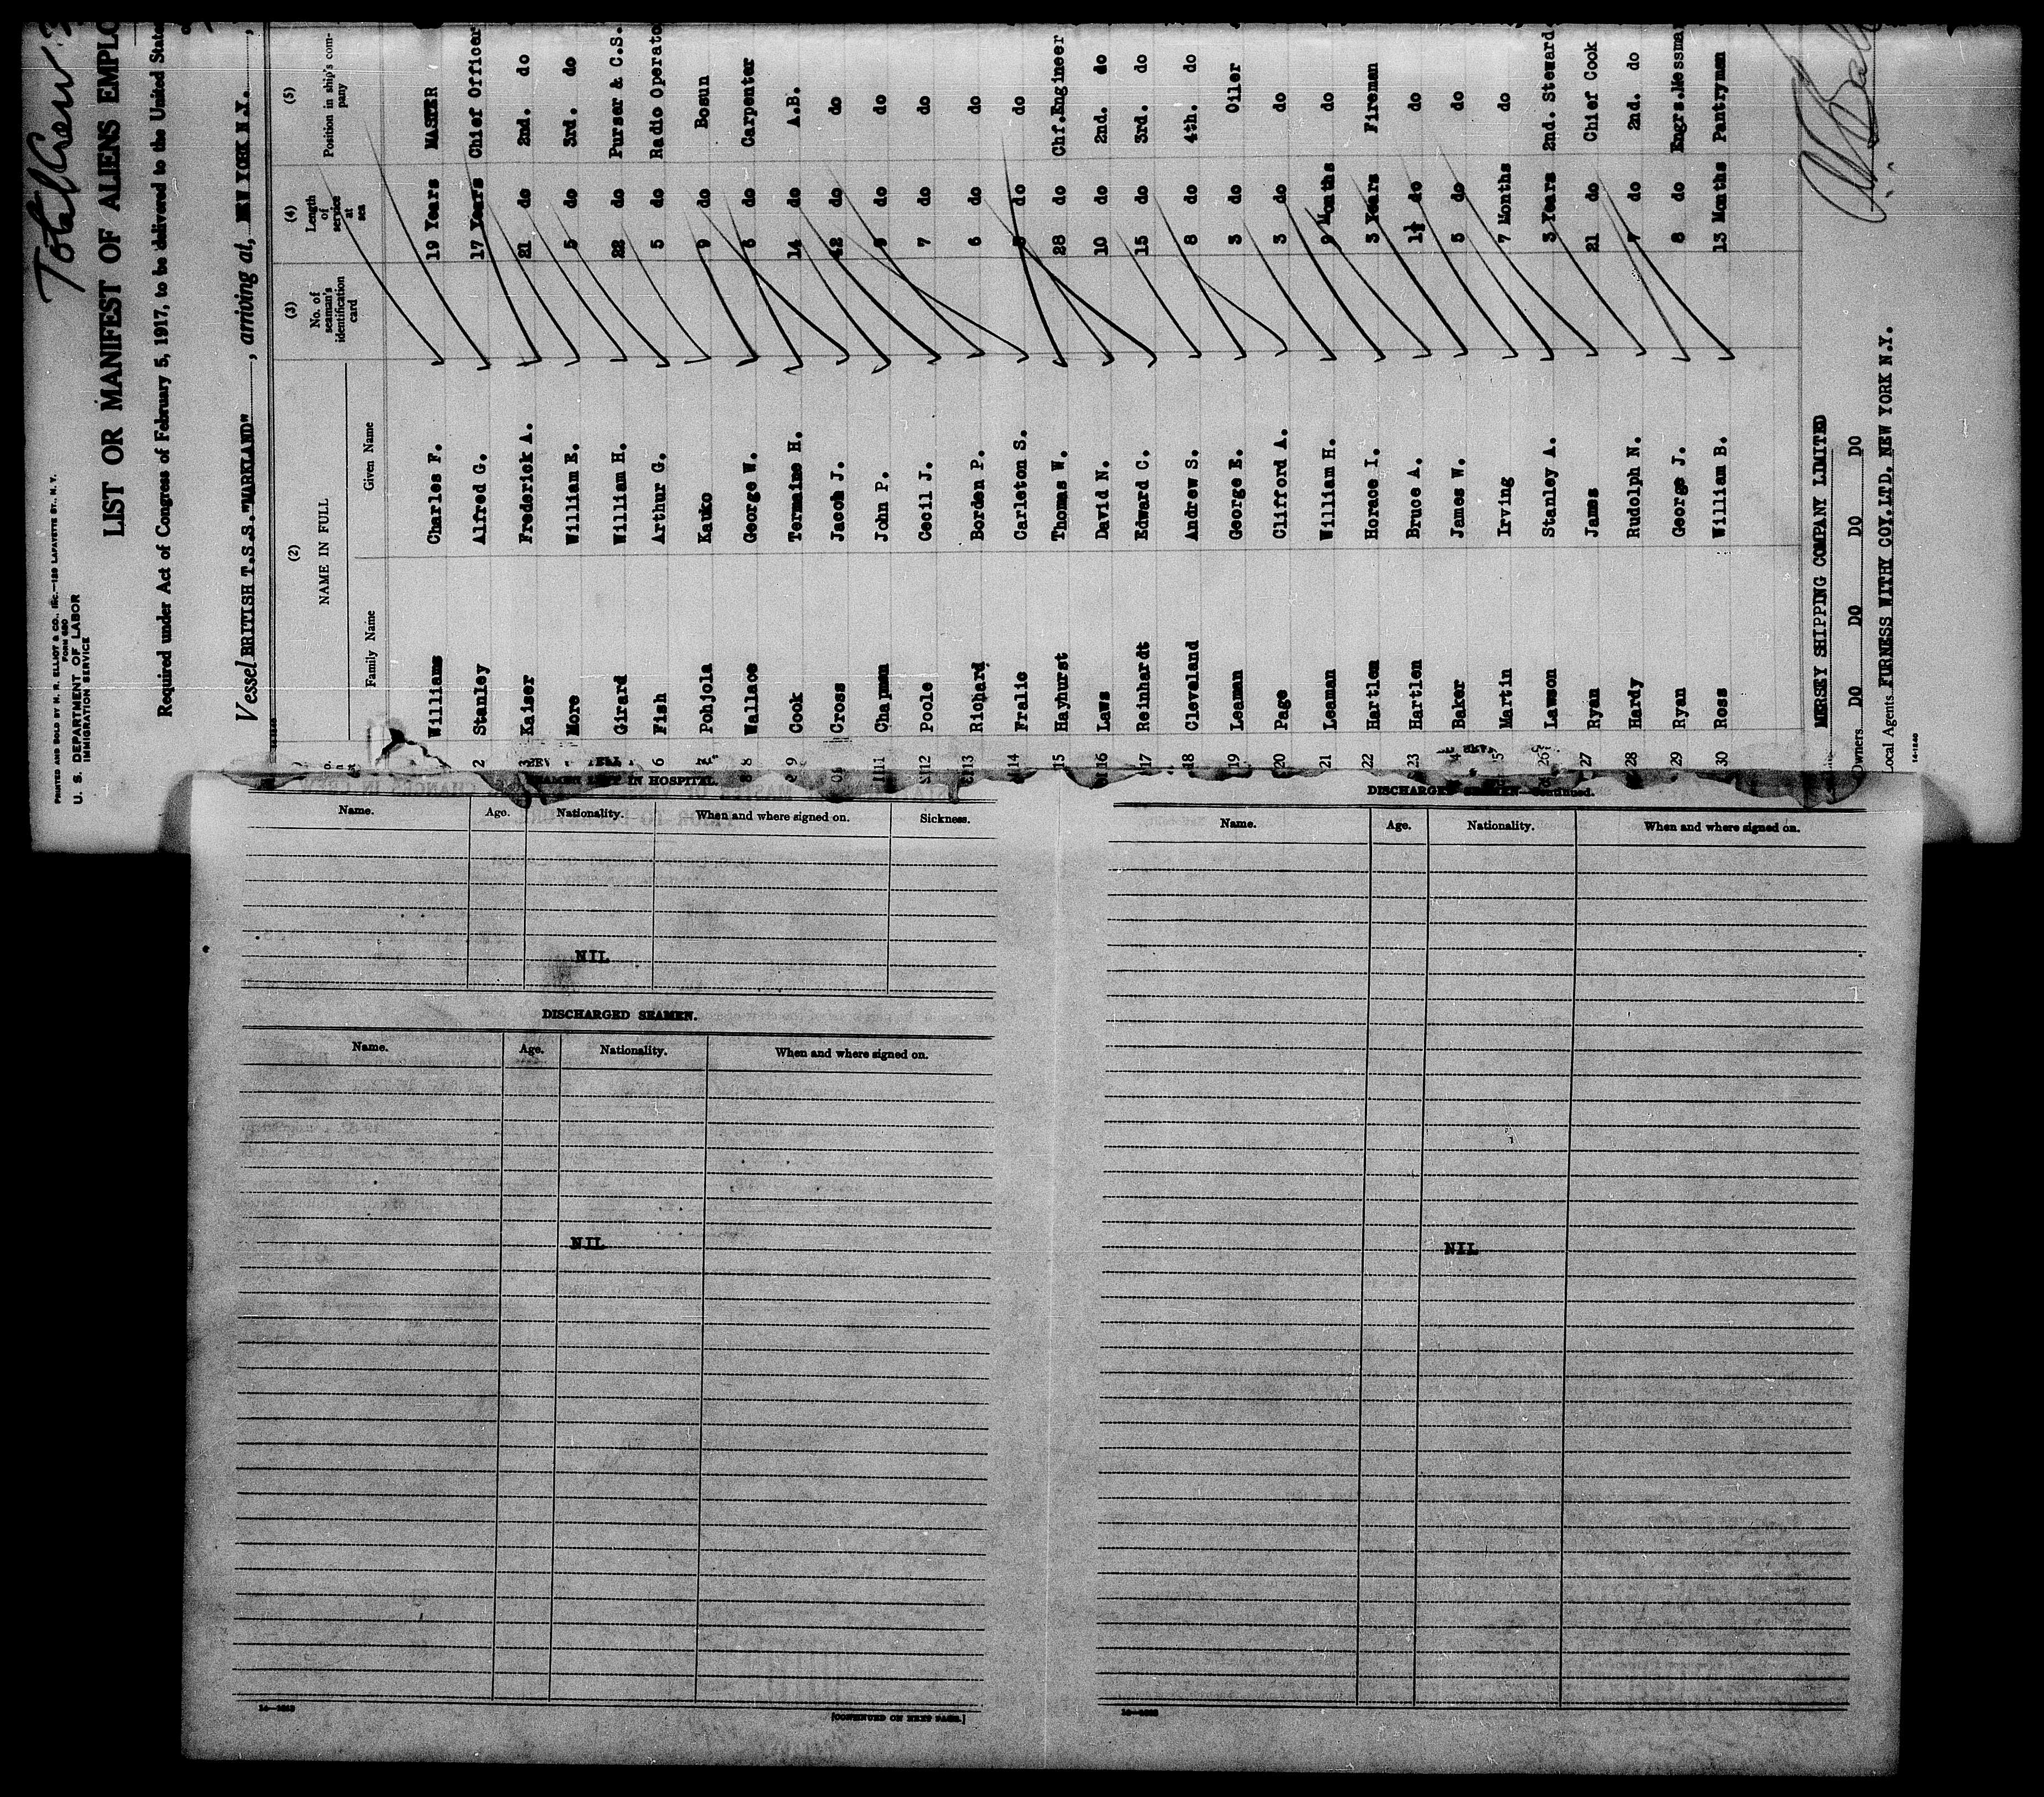 Total Crew
PRINTED AND SOLD BY H. R. ELLIOT & CO., INC.—129 LAFAYETTE ST., N.Y.
FORM 680
U. S. DEPARTMENT OF LABOR
IMMIGRATION SERVICE
LIST OR MANIFEST OF ALIENS EMPLO
Required under Act of Congress of February 5, 1917, to be delivered to the United State
Vessel BRITISH T.S.S."MARKLAND", arriving at, NEW YORK N.Y.,
(2) (3) (4) (5)
NAME IN FULL No. of seaman's identification card Length of service at sea Position in ship's company
Family Name Given Name
Williams Charles F. 19 Years MASTER
2 Stanley Alfred G. 17 Years Chief Officer
3 Kaiser Frederick A. 21 do 2nd. do
More William E. 5 do 3rd. do
Girard William H. 22 do Purser & C.S.
6 Fish Arthur G. 5 do Radio Operato
Pohjola Kauko 9 do Bosun
8 Wallace George W. 6 do Carpenter
9 Cook Termaine H. 14 do A.B.
Cross Jacob J. 42 do do
11 Chapman John P. do do
12 Poole Cecil J. 7 do do
13 Richard Borden P. 6 do do
14 Fralic Carleton S. do do
15 Hayhurst Thomas W. 28 do Chf.Engineer
16 Laws David N. 10 do 2nd. do
17 Reinhardt Edward C. 15 do 3rd. do
18 Cleveland Andrew S. 8 do 4th. do
19 Leaman George E. 3 do Oiler
20 Page Clifford A. 3 do do
21 Leaman William H. 9 Months do
22 Hartlen Horace I. 3 Years Fireman
23 Hartlen Bruce A. 1½ do do
Baker James W. 5 do do
Martin Irving 7 Months do
26 Lawson Stanley A. 3 Years 2nd. Steward
27 Ryan James 21 do Chief Cook
28 Hardy Rudolph N. 7 do 2nd. do
29 Ryan George J. 8 do Engrs.Messma
30 Ross William B. 13 Months Pantryman
MERSEY SHIPPING COMPANY LIMITED
Owners DO DO DO DO
Local Agents FURNESS WITHY COY.LTD. NEW YORK N.Y.
14-1240
SEAMEN LEFT IN HOSPITAL
Name. Age. Nationality. When and where signed on. Sickness.
NIL
DISCHARGED SEAMEN.
Name. Age. Nationality. When and where signed on.
NIL
[CONTINUED ON NEXT PAGE.]
DISCHARGED SEAMEN—Continued.
Name. Age. Nationality. When and where signed on.
NIL